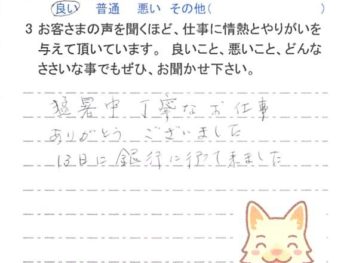 良い 普通 悪い その他(
3 お客さまの声を聞くほど、仕事に情熱とやりがいを
与えて頂いています。 良いこと、悪いこと、どんな
ささいな事でもぜひ、お聞かせ下さい。
猛暑中 丁寧なお仕事
ありがとう ございました
13日に 銀行に行って来ました